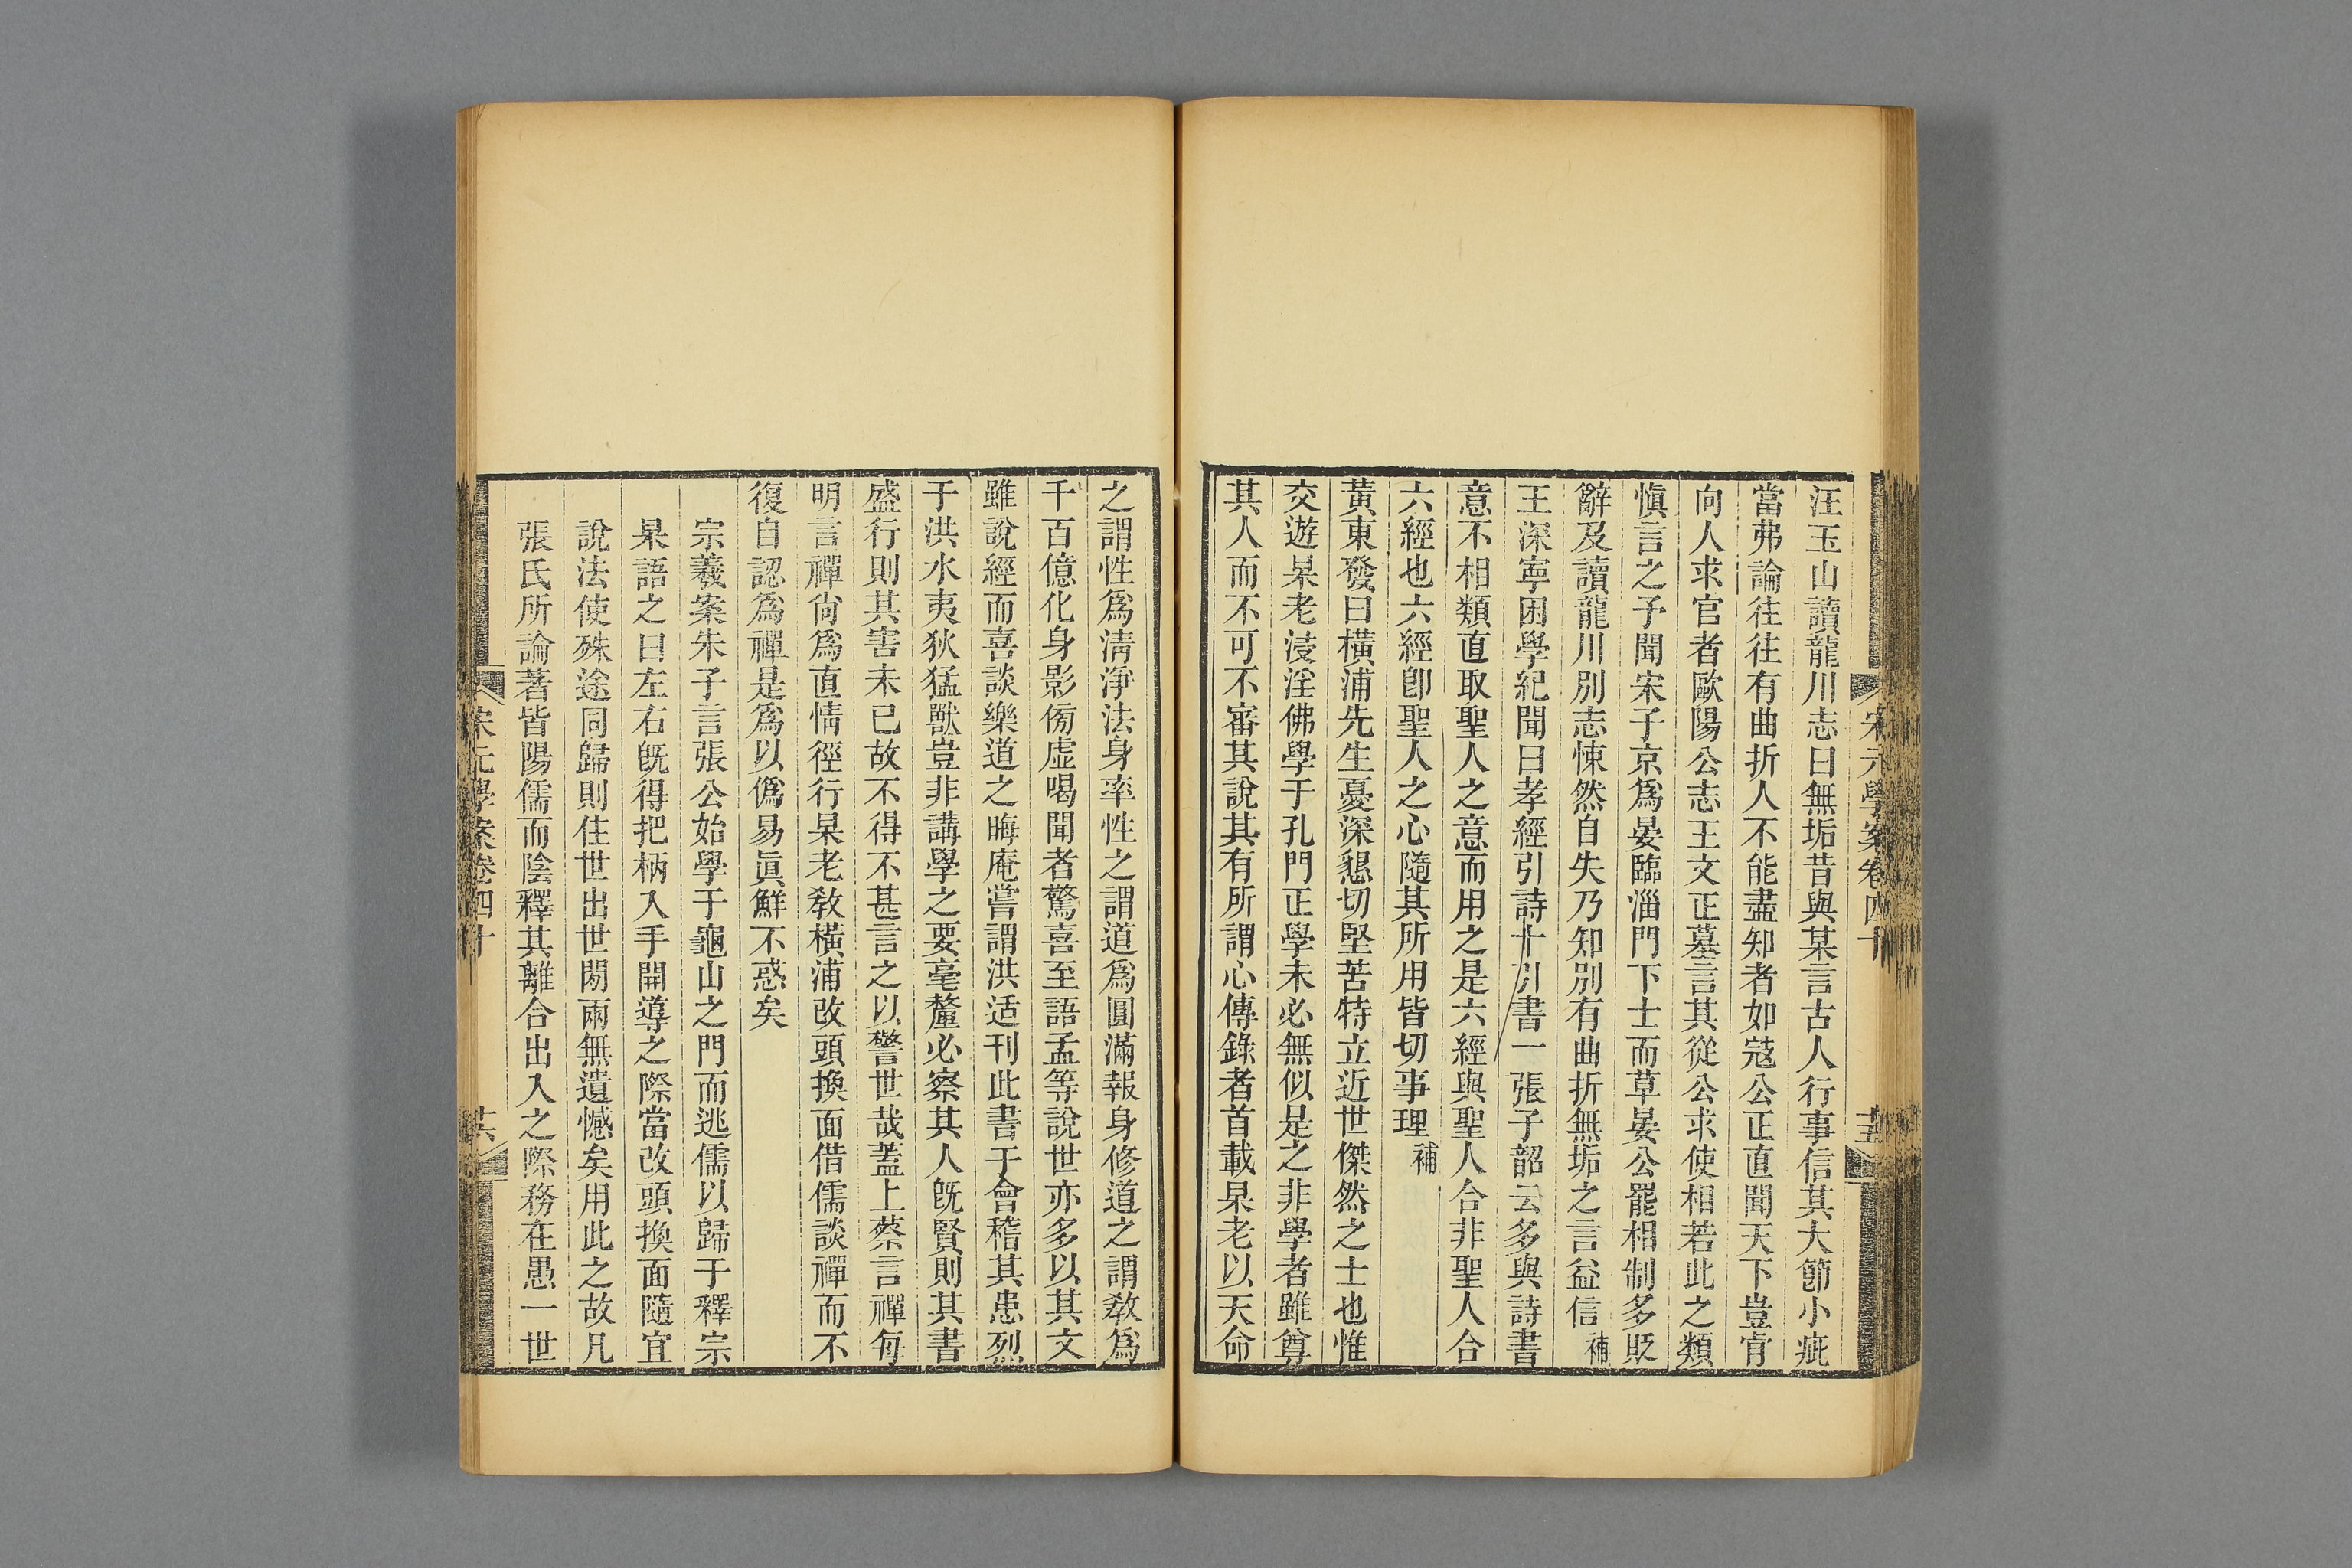 宋元學案卷四十
十五
汪玉山讀龍川志曰無垢昔與某言古人行事信其大節小疵
當弗論往往有曲折人不能盡知者如寇公正直聞天下豈肯
向人求官者歐陽公志王文正墓言其從公求使相若此之類
愼言之予聞宋子京爲晏臨淄門下士而草晏公罷相制多貶
辭及讀龍川別志悚然自失乃知別有曲折無垢之言益信補
王深寕困學紀聞曰孝經引詩十引書一張子韶云多與詩書
意不相類直取聖人之意而用之是六經與聖人合非聖人合
六經也六經卽聖人之心隨其所用皆切事理補
黃東發曰橫浦先生憂深懇切堅苦特立近世傑然之士也惟
交遊杲老浸淫佛學于孔門正學未必無似是之非學者雖尊
其人而不可不審其說其有所謂心傳錄者首載杲老以天命
之謂性爲淸淨法身率性之謂道爲圓滿報身修道之謂敎爲
千百億化身影傍虛喝聞者驚喜至語孟等說世亦多以其文
雖說經而喜談樂道之晦庵嘗謂洪适刊此書于會稽其患烈
于洪水夷狄猛獸豈非講學之要毫釐必察其人旣賢則其書
盛行則其害未已故不得不甚言之以警世哉蓋上蔡言禪每
明言禪尙爲直情徑行杲老敎橫浦改頭換面借儒談禪而不
復自認爲禪是爲以僞易眞鮮不惑矣
宗羲案朱子言張公始學于龜山之門而逃儒以歸于釋宗
杲語之曰左右旣得把柄入手開導之際當改頭換面隨宜
說法使殊途同歸則住世出世閒兩無遺憾矣用此之故凡
張氏所論著皆陽儒而陰釋其離合出入之際務在愚一世
宋元學案卷四十
十六